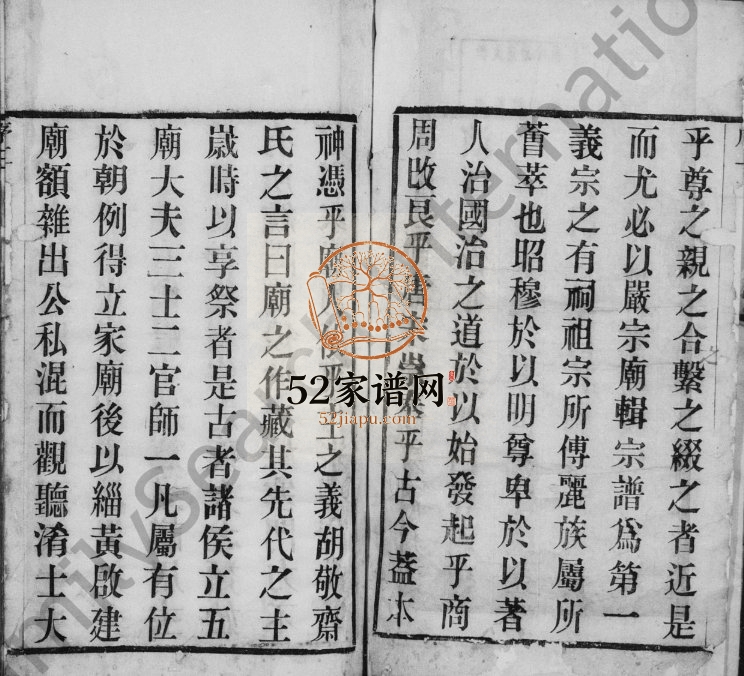 乎尊之親之合繫之綴之者近是
而尤必以嚴宗廟輯宗譜爲第一
義宗之有祠祖宗所傅麗族屬所
薈萃也昭穆於以明尊卑於以著
人治國治之道於以始發起乎商
周改良乎唐宋 乎古今蓋木
神憑乎廟人 之義胡敬齋
氏之言曰廟之作藏其先代之主
歲時以享祭者是古者諸侯立五
廟大夫三士二官師一凡屬有位
於朝例得立家廟後以緇黃啟建
廟額雜出公私混而觀聽淆士大
52家谱网
52jiapu.com
FamilySearch International